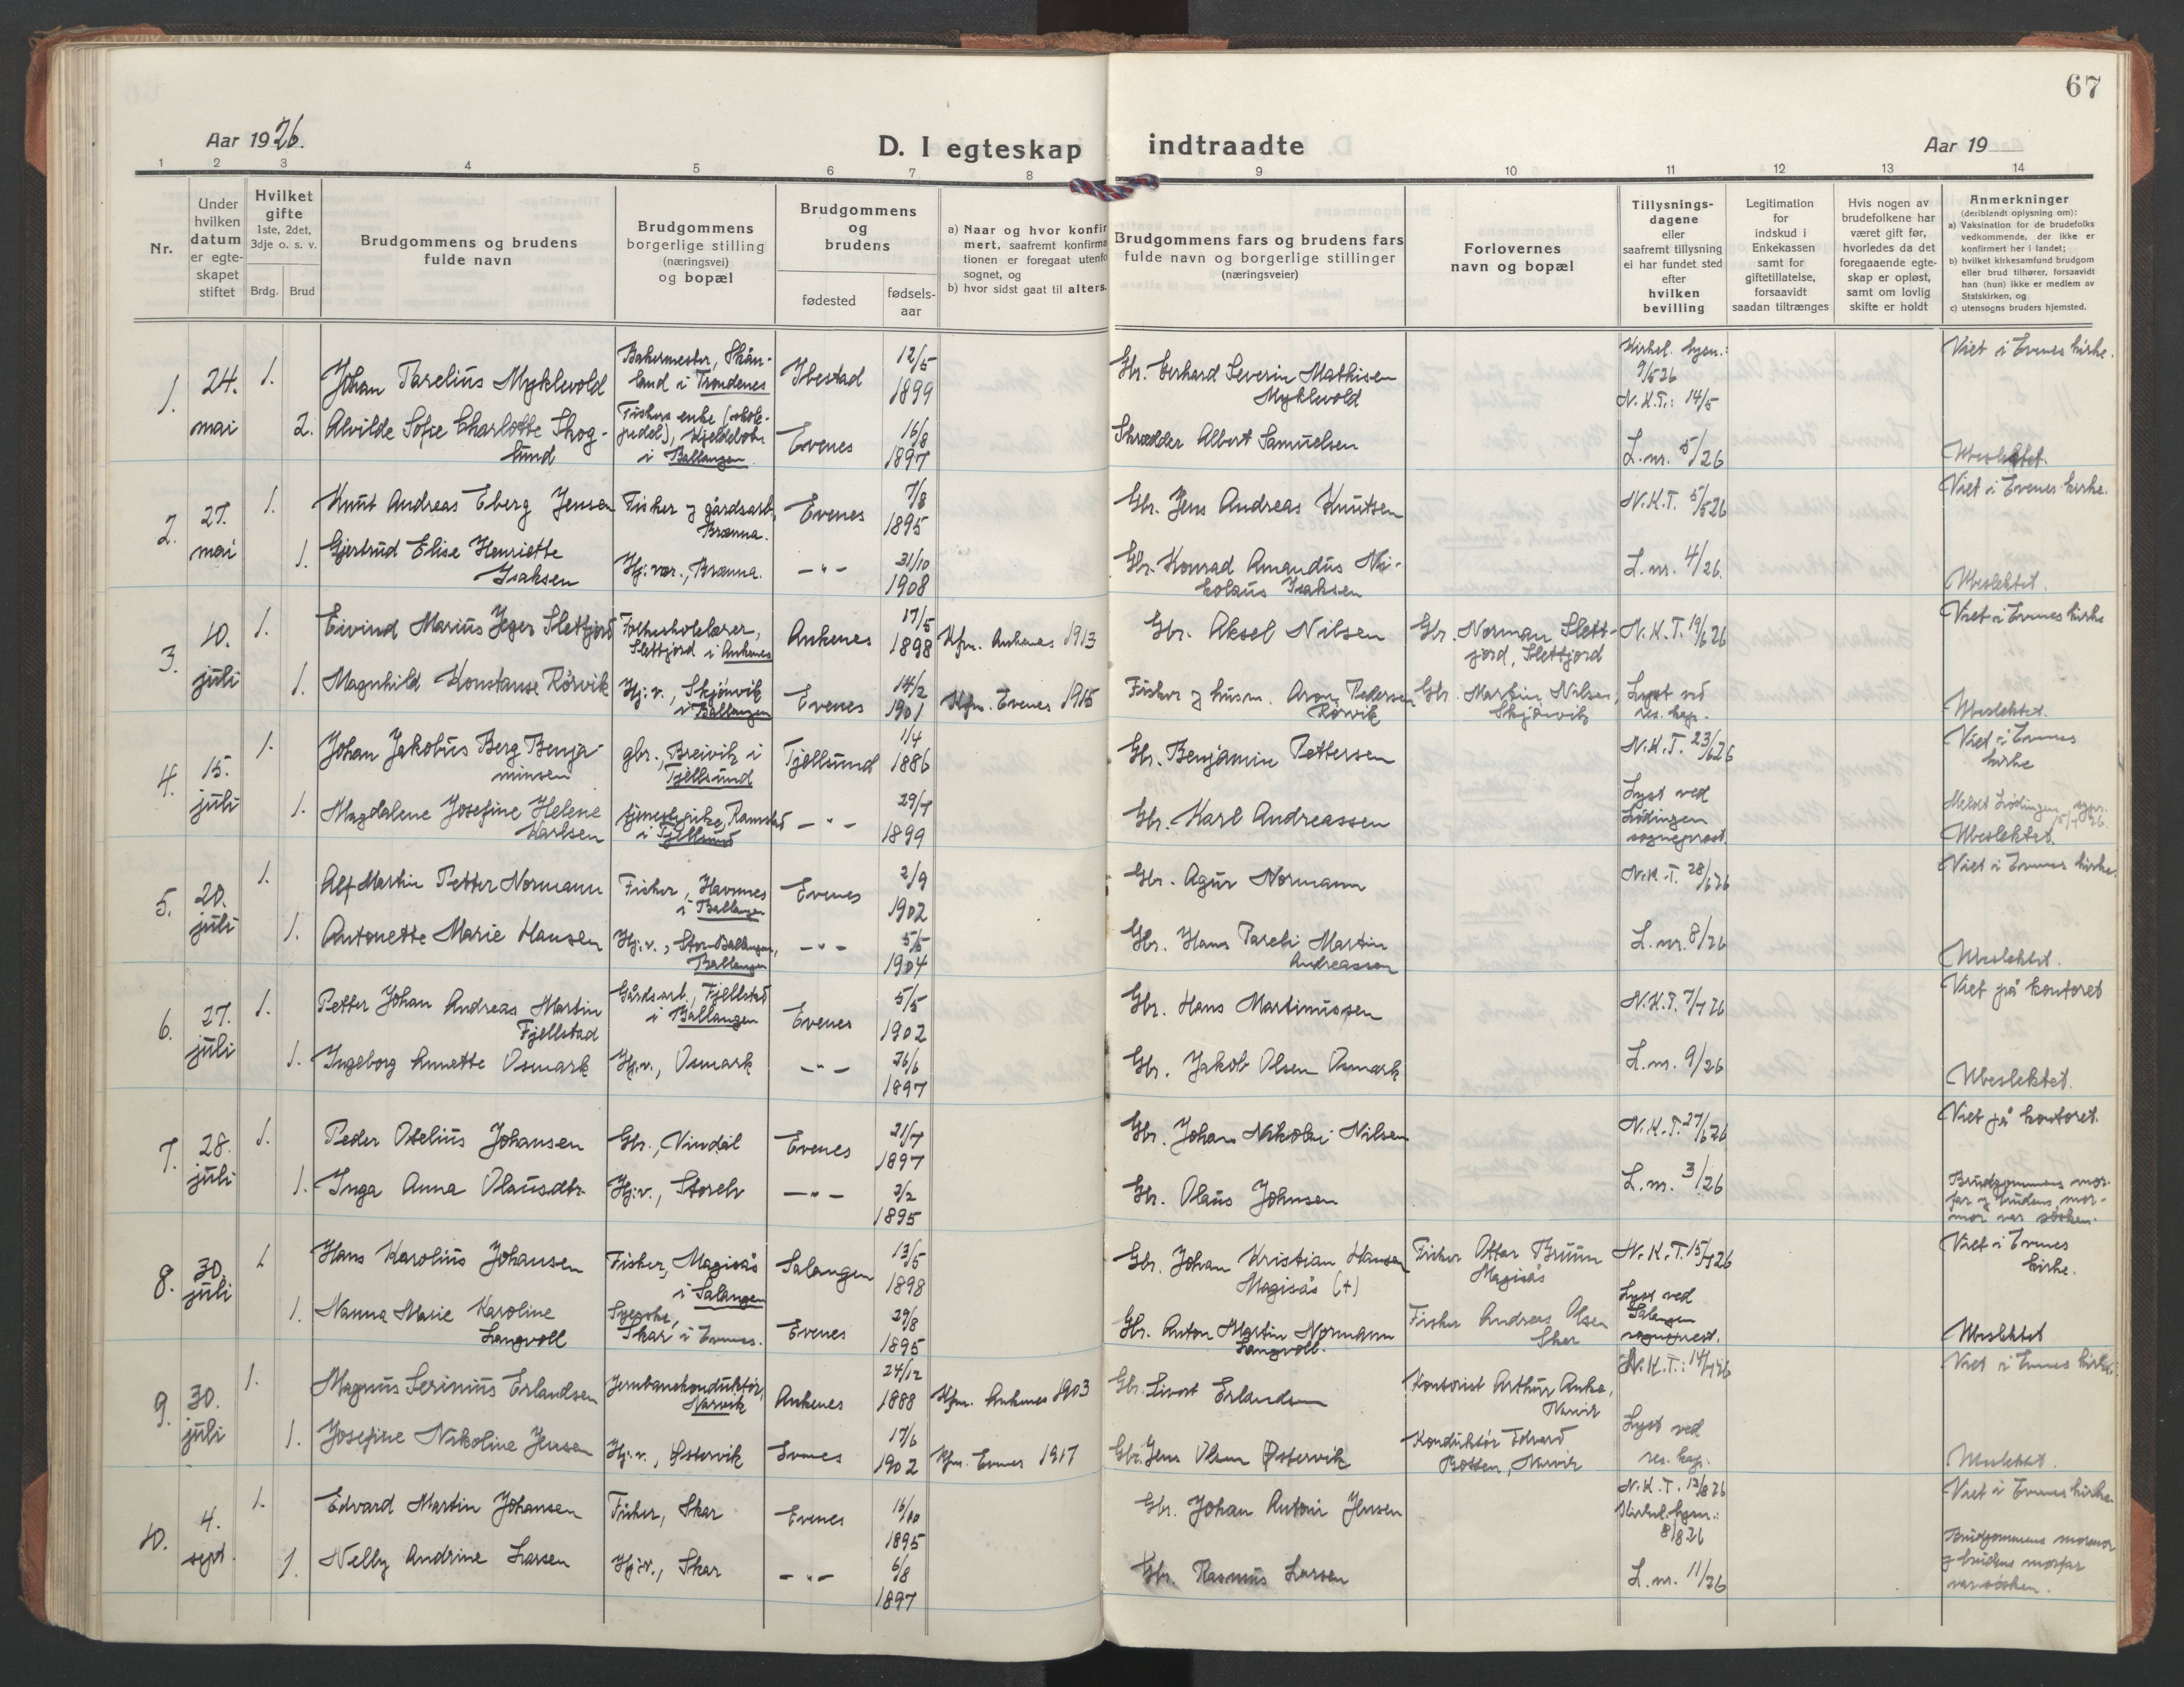 67
Aar 1926.
D. I egteskap indtraadte
Aar 19
1 2 3 4 5 6 7 8 9 10 11 12 13 14
Nr.
Under
hvilken
datum
er egte-
skapet
stiftet
Hvilket
gifte
1ste, 2det,
3dje o. s. v.
Brdg. Brud
Brudgommens og brudens
fulde navn
Brudgommens
borgerlige stilling
(næringsvei)
og bopæl
Brudgommens
og
brudens
fødested
fødsels-
aar
a) Naar og hvor konfir
mert, saafremt konfirma
tionen er foregaat utenfo
sognet, og
b) hvor sidst gaat til alters.
Brudgommens fars og brudens fars
fulde navn og borgerlige stillinger
(næringsveier)
Forlovernes
navn og bopæl
Tillysnings-
dagene
eller
saafremt tillysning
ei har fundet sted
efter
hvilken
bevilling
Legitimation
for
indskud i
Enkekassen
samt for
giftetillatelse,
forsaavidt
saadan tiltrænges
Hvis nogen av
brudefolkene har
været gift før,
hvorledes da det
foregaaende egte-
skap er opløst,
samt om lovlig
skifte er holdt
Anmerkninger
(deriblandt oplysning om):
a) Vaksination for de brudefolks
vedkommende, der ikke er
konfirmert her i landet;
b) hvilket kirkesamfund brudgom
eller brud tilhører, forsaavidt
han (hun) ikke er medlem av
Statskirken, og
c) utensogns bruders hjemsted.
1. 24. mai
1. Johan Parelius Myklevold
Bakermester, Skån-
land i Trondenes
Ibestad
12/5 1899
Gbr. Gerhard Severin Mathisen
Myklevold
Kirkel. bgm.:
9/5 26
N.K.T.: 14/5
Viet i Evenes kirke.
2. Alvilde Sofie Charlotte Skog-
lund
Fiskers enke
i Ballangen
Evenes
16/8 1897
Skrædder Albert Samuelsen
L.nr. 5/26
Ubeslektet.
2. 27. mai
1. Knut Andreas Eberg Jensen
Fisker og gårdsarb.,
Brænna.
Evenes
7/8 1895
Gbr. Jens Andreas Knutsen
N.K.T. 5/5 26
Viet i Evenes kirke.
1. Gjertrud Elise Henriette
Isaksen
Hj: vær., Brænna.
- " -
31/10 1908
Gbr. Konrad Amandus Ni-
kolaus Isaksen
L.nr. 4/26.
Ubeslektet.
3. 10. juli
1. Eivind Marius Jeger Slettjord
Folkeskolelærer,
Slettjord i Ankenes
Ankenes
17/5 1898
Kfm. Ankenes 1913
Gbr. Aksel Nilsen
Gbr. Norman Slett-
jord, Slettjord
N.K.T. 19/6 26
Viet i Evenes kirke
1. Magnhild Konstanse Rörvik
Hj: v., Skjönvik
i Ballangen
Evenes
14/2 1901
Kfm. Evenes 1915
Fisker og husm. Aron Pedersen
Rörvik
Gbr. Martin Nilsen,
Skjönvik
Lyst ved
res. kap.
Ubeslektet.
4. 15. juli
1. Johan Jakobus Berg Benja-
minsen
gbr., Breivik i
Tjellsund
Tjellsund
1/4 1886
Gbr. Benjamin Pettersen
N.K.T. 23/6 26
Viet i Evenes
kirke
1. Magdalene Josefine Helene
Karlsen
tjenestepike, Ramstad
i Tjellsund
- " -
29/7 1899
Gbr. Karl Andreassen
Lyst ved
Lödingen
sogneprest.
Meldt Lödingen
Ubeslektet.
5. 20. juli
1. Alf Martin Petter Normann
Fisker, Havnnes
i Ballangen
Evenes
2/9 1902
Gbr. Agur Normann
N.K.T. 28/6 26
Viet i Evenes kirke.
1. Antonette Marie Hansen
Hj: v., Stor-Ballangen,
Ballangen
- " -
5/5 1904
Gbr. Hans Pareli Martin
Andreassen
L.nr. 8/26
Ubeslektet.
6. 27. juli
1. Petter Johan Andreas Martin
Fjellstad
Gårdsarb., Fjellstad
i Ballangen
Evenes
5/5 1902
Gbr. Hans Martinussen
N.K.T. 7/7 26
Viet på kontoret
1. Ingeborg Annette Osmark
Hj. v., Osmark
- " -
26/6 1897
Gbr. Jakob Olsen Osmark
L.nr. 9/26
Ubeslektet.
7. 28. juli
1. Peder Otelius Johansen
Gbr., Vindal
Evenes
21/7 1897
Gbr. Johan Nikolai Nilsen
N.K.T. 27/6 26
Viet på kontoret.
1. Inga Anna Olausdtr.
Hj: v., Storelv
- " -
2/2 1895
Gbr. Olaus Johnsen
L.nr. 3/26
Brudgommens mor-
far og brudens mor-
mor var sösken.
8. 30. juli
1. Hans Karolius Johansen
Fisker, Magisås
i Salangen
Salangen
13/5 1898
Gbr. Johan Kristian Hansen
Magisås (+)
Fisker Ottar Bruun
Magisås
N.K.T. 15/7 26
Viet i Evenes
kirke.
1. Nanna Marie Karoline
Langvoll
Syerske,
Skar i Evenes.
Evenes
29/8 1895
Gbr. Anton Martin Normann
Langvoll.
Fisker Andreas Olsen
Skar
Lyst ved
Salangen
sogneprest.
Ubeslektet
9. 30. juli
1. Magnus Serinius Erlandsen
Jernbanekonduktör,
Narvik
Ankenes
24/12 1888
Kfm. Ankenes 1903
Gbr. Sivert Erlandsen
Kontorist Arthur Anke,
Narvik
N.K.T.: 14/7 26
Viet i Evenes kirke.
1. Josefine Nikoline Jensen
Hj: v., Østervik
Evenes
17/6 1902
Kfm. Evenes 1917
Gbr. Jens Olsen Østervik
Konduktör Edvard
Botten, Narvik
Lyst ved
res. kap.
Ubeslektet.
10. 4. sept.
1. Edvard Martin Johansen
Fisker, Skar
Evenes
16/10 1895
Gbr. Johan Antoni Jensen
N.K.T. 13/8 26
Kirkel. bgm.:
8/8 26
Viet i Evenes kirke
1. Nelly Andrine Larsen
Hj: v., Skar
- " -
6/8 1897
Gbr. Rasmus Larsen
L.nr. 11/26
Brudgommens mormor
og brudens morfar
var sösken.